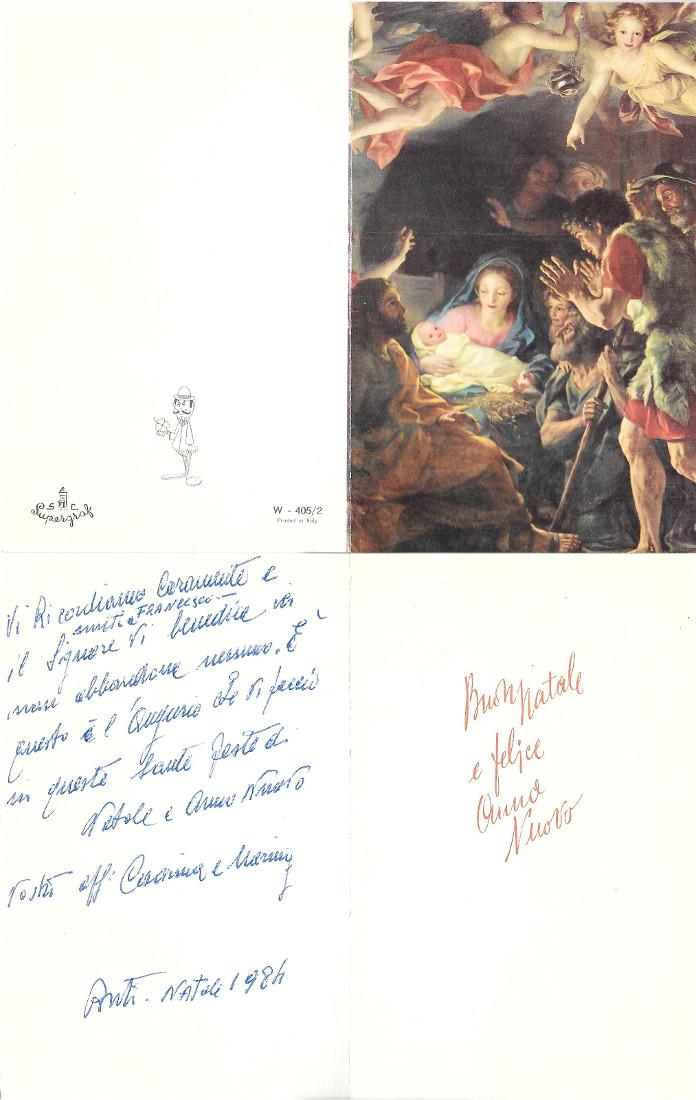 Supergraf
W - 405/2
Printed in Italy
Vi Ricordiamo Caramente e
FRANCESCO
il Signore Vi benedica
non abbandona nessuno. E
questo è l'Augurio che vi faccio
in queste Sante feste di
Natale e Anno Nuovo
Vostri aff.
Natale 1984
Buon Natale
e felice
Anno
Nuovo